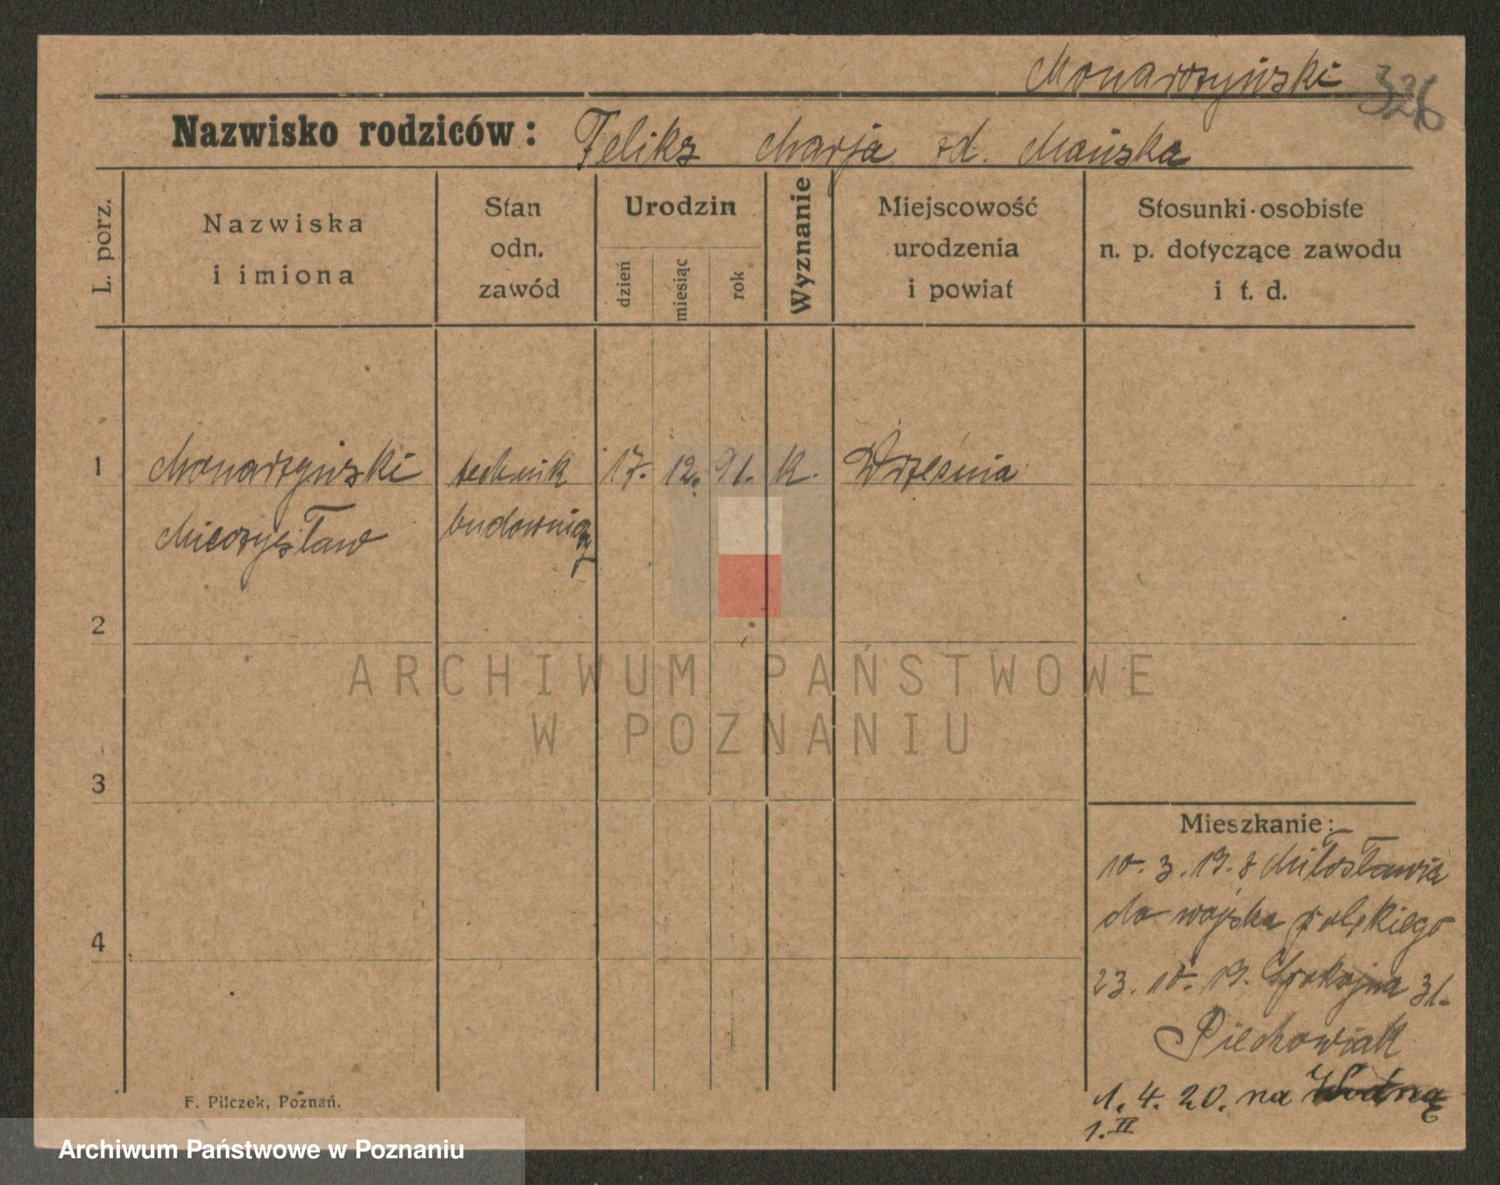 Monarszyński 326
Nazwisko rodziców: Feliks Marja zd. Mańska
L. porz.
Nazwiska
i imiona
Stan
odn.
zawód
Urodzin
dzień
miesiąc
rok
Wyznanie
Miejscowość
urodzenia
i powiat
Stosunki osobiste
n. p. dotyczące zawodu
i t. d.
1 Monarszyński technik 17. 12. 91. k. Września
Mieczysław budowniczy
2
ARCHIWUM PAŃSTWOWE
W POZNANIU
3
Mieszkanie:
10. 3. 19. z Miłosławia
do wojska polskiego
4
23. 10. 19. Spokojna 31.
Piechowiak
1. 4. 20. na Wodną
1. II
F. Pilczek, Poznań.
Archiwum Państwowe w Poznaniu